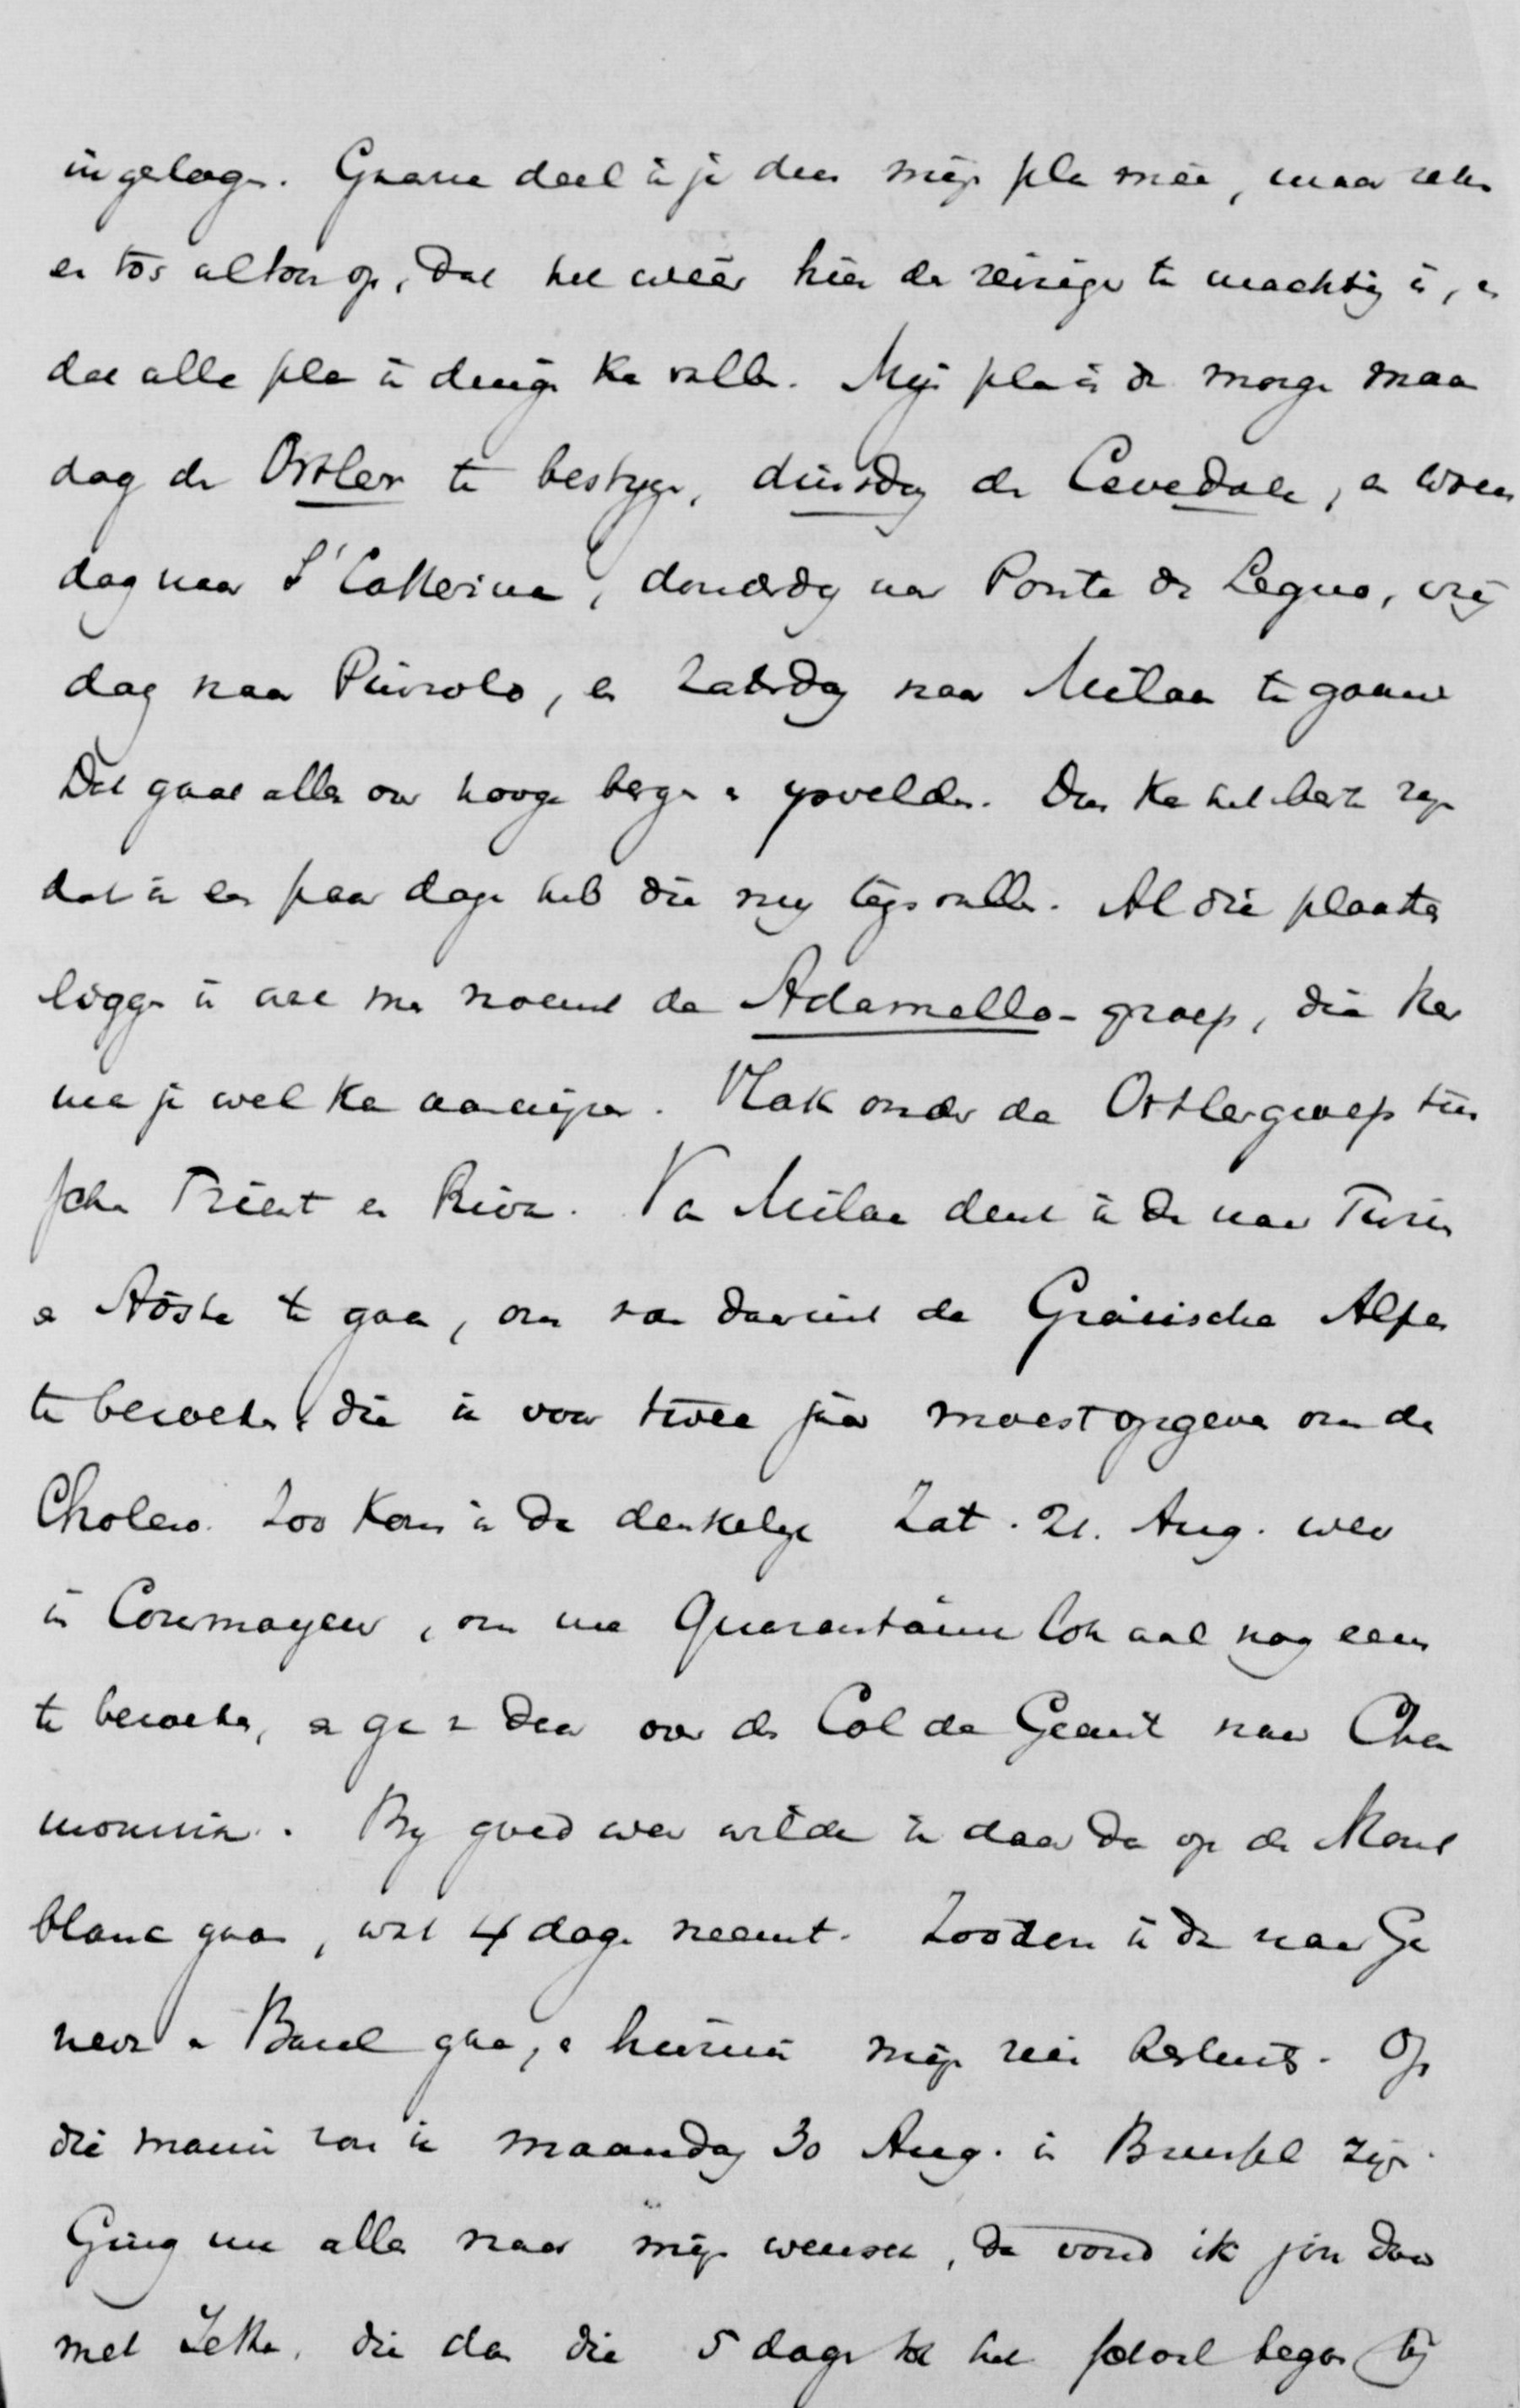 ingeslagen. Gaarne deel ik je dus mijn plan mee, maar reken
er dus altoos op, dat het weer hier de reiziger te machtig is, en
dat alle plan in duigen kan vallen. Mijn plan is dan morgen maan
dag de Ortler te bestygen, dinsdag de Cevedale, en woens
dag naar St Catterina, donderdag naar Ponte di Legno, vrij
dag naar Pinzolo, en Zaterdag naar Milaan te gaan
Dat gaat alles over hooge bergen en ysvelden. Dus kan het best zijn
dat ik een paar dagen heb die mij tegenvallen. Al die plaatsen
liggen in wat men noemt de Adamello-groep, die Ker
me je wel kan aanwijzen. Vlak onder de Ortlergroep tus
schen Trient en Riva. Van Milaan denk ik dan naar Turin
en Aosta te gaan, om van daaruit de Graiische Alpen
te bezoeken, die ik voor twee jaar moest opgeven om de
Cholera. Zoo kom ik dan denkelijk Zat. 21. Aug. weer
in Courmayeur, om me Quarantaine lokaal nog eens
te bezoeken, en ga dan over de Col de Geant naar Cha
mounix. By goed weer wilde ik daar dan op de Mont
blanc gaan, wat 4 dagen neemt. Zoodat ik dan naar Ge
neve en Bazel ga, en hiermee mijn reis besluit. Op
die manier zou ik maandag 30 Aug. in Brussel zijn.
Ging nu alles naar mijn wensch, dan vond ik jou daar
met Jette, die dan die 5 dagen tot het school begon bij